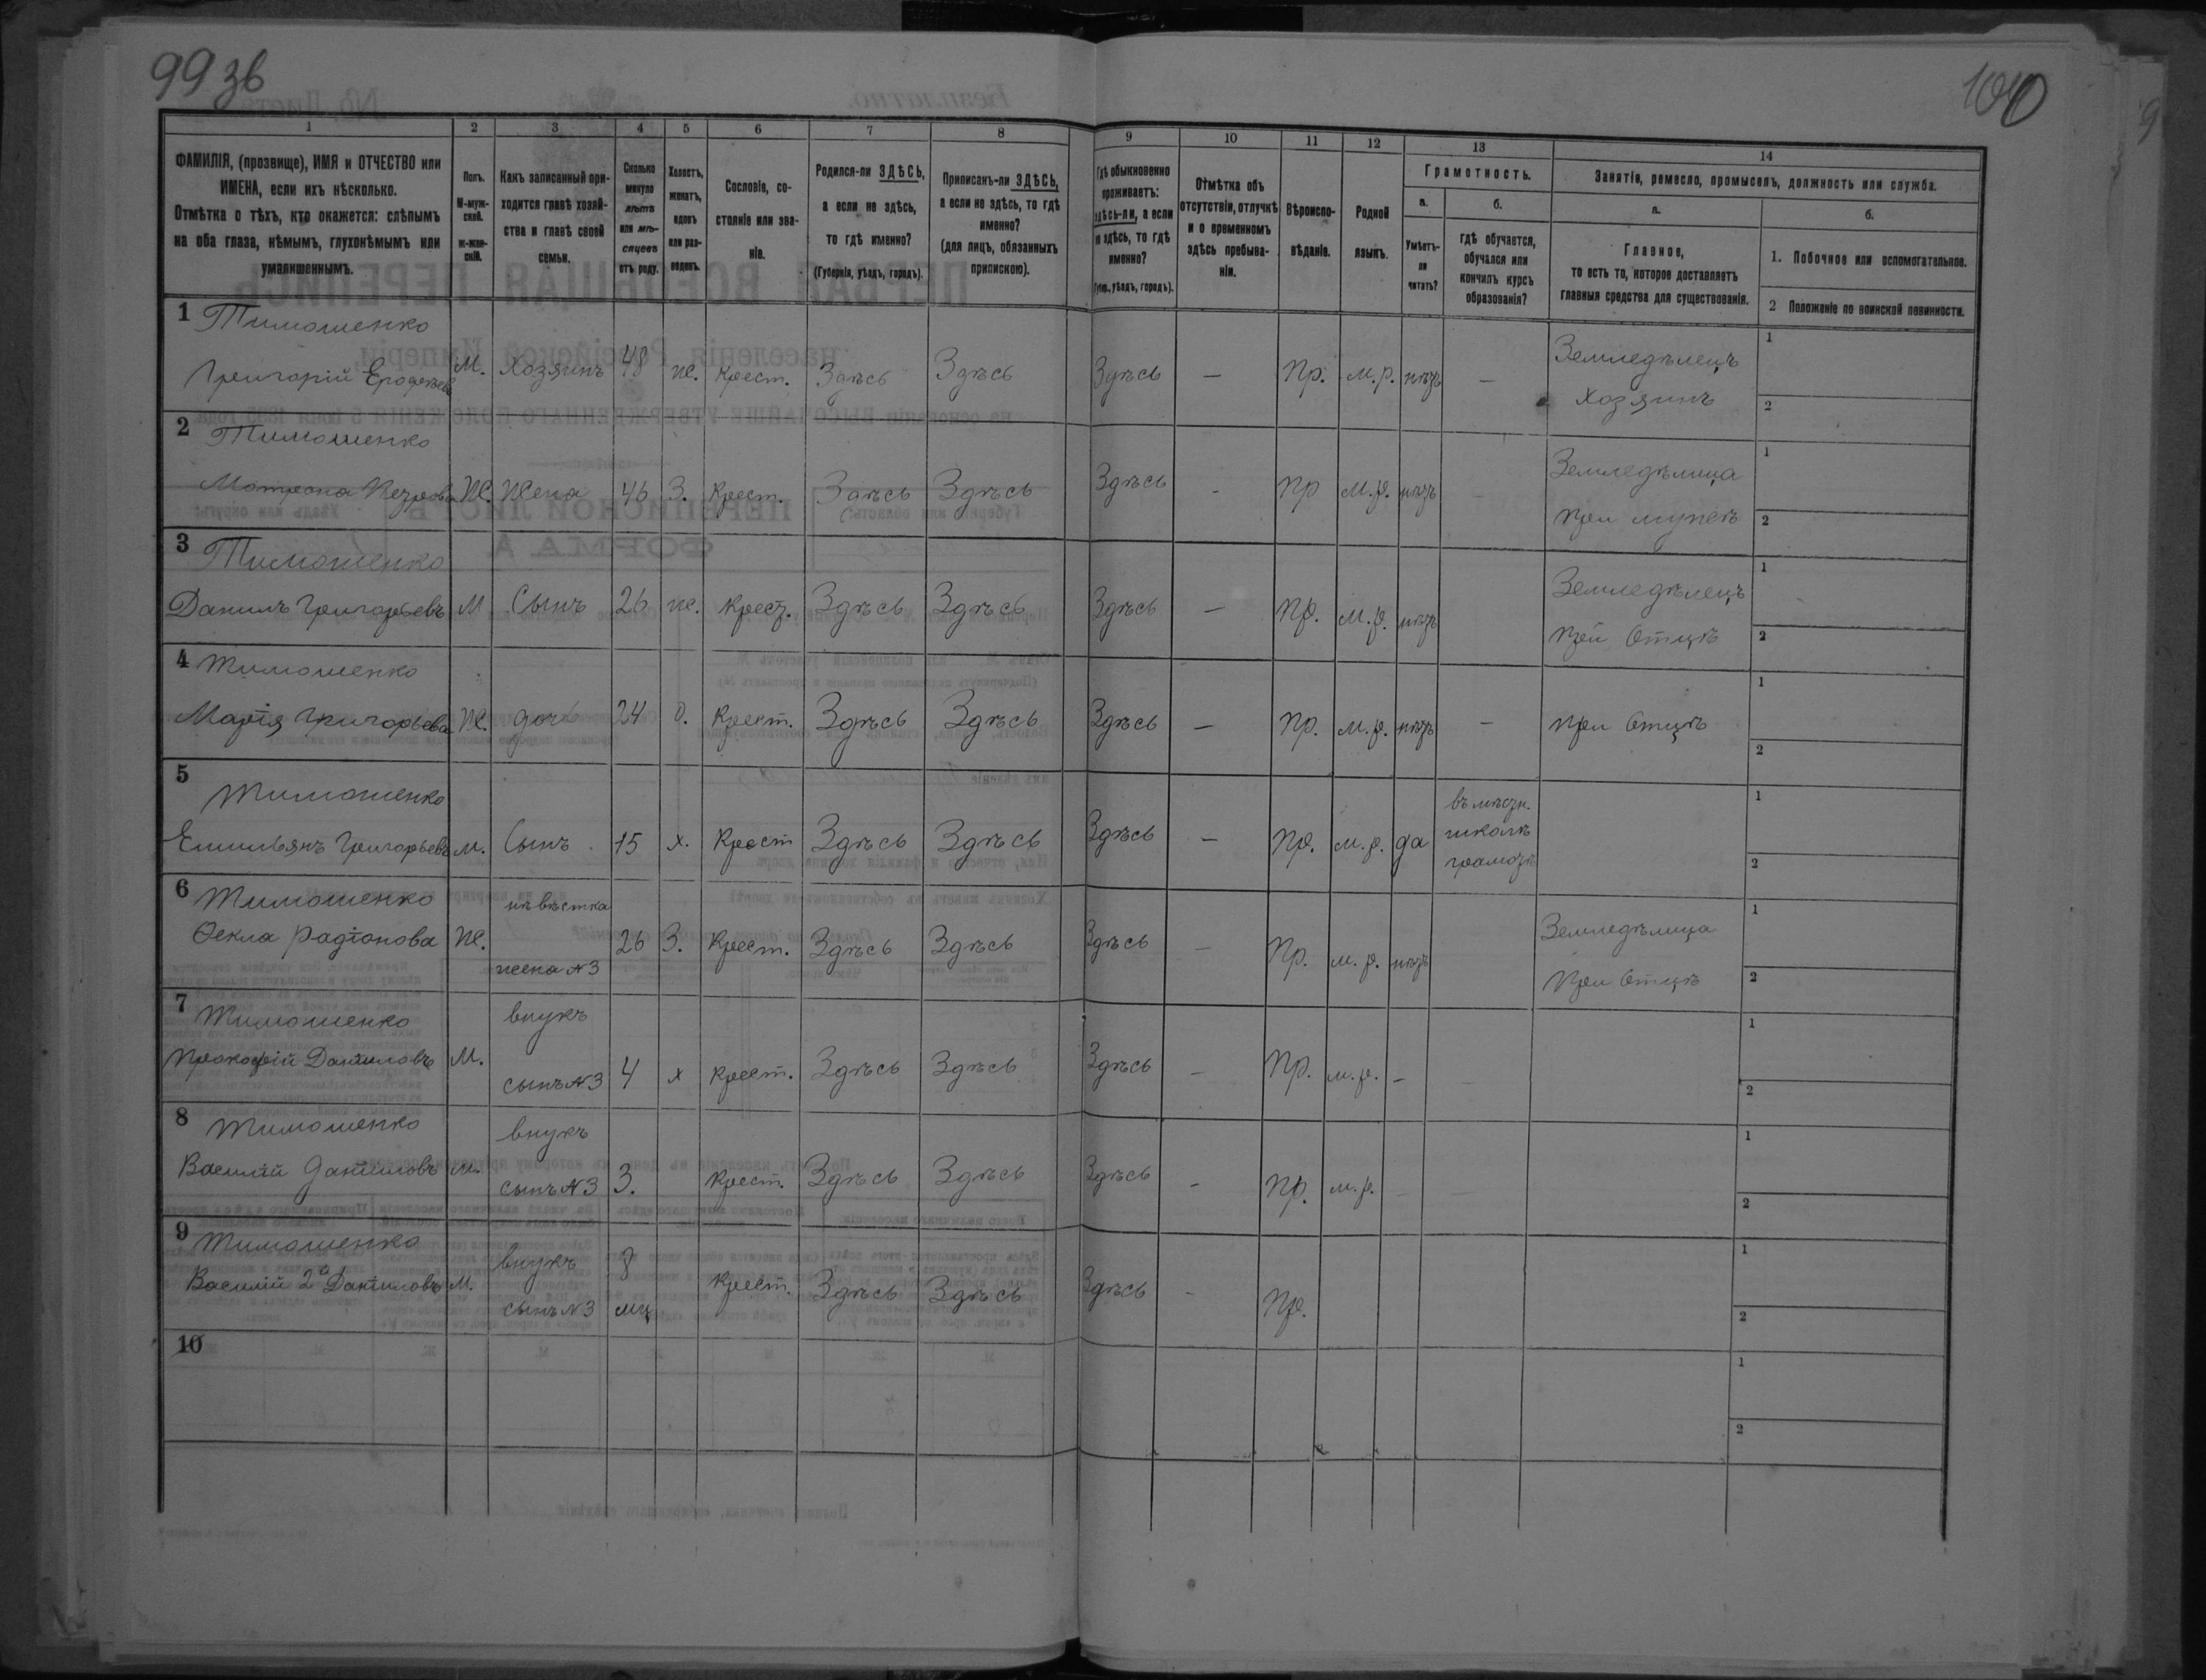 99 зв
100
1 2 3 4 5 6 7 8 9 10 11 12 13 14
ФАМИЛІЯ, (прозвище), ИМЯ и ОТЧЕСТВО или
ИМЕНА, если ихъ нѣсколько.
Отмѣтка о тѣхъ, кто окажется: слѣпымъ
на оба глаза, нѣмымъ, глухонѣмымъ или
умалишеннымъ.
Полъ.
М-муж-
ской.
ж-жен-
скій.
Какъ записанный при-
ходится главѣ хозяй-
ства и главѣ своей
семьи.
Сколько
минуло
лѣтъ
или мѣ-
сяцевъ
отъ роду.
Холостъ,
женатъ,
вдовъ
или раз-
веденъ.
Сословіе, со-
стояніе или зва-
ніе.
Родился-ли ЗДѢСЬ,
а если не здѣсь,
то гдѣ именно?
(Губернія, уѣздъ, городъ).
Приписанъ-ли ЗДѢСЬ,
а если не здѣсь, то гдѣ
именно?
(для лицъ, обязанныхъ
припискою).
Гдѣ обыкновенно
проживаетъ:
здѣсь-ли, а если
не здѣсь, то гдѣ
именно?
(Губ., уѣздъ, городъ).
Отмѣтка объ
отсутствіи, отлучкѣ
и о временномъ
здѣсь пребыва-
ніи.
Вѣроиспо-
вѣданіе.
Родной
языкъ.
Грамотность.
а.
Умѣетъ-
ли
читать?
б.
гдѣ обучается,
обучался или
кончилъ курсъ
образованія?
Занятіе, ремесло, промыселъ, должность или служба.
а.
Главное,
то есть то, которое доставляетъ
главныя средства для существованія.
б.
1. Побочное или вспомогательное.
2 Положеніе по воинской повинности.
1 Тимошенко
Григорій М. Хозяинъ 48 ж. Крест. Здѣсь Здѣсь Здѣсь — Пр. м.р. нѣтъ — Земледѣлецъ
хозяинъ
1
2
2 Тимошенко
Матрона Ж. Жена 46 З. Крест. Здѣсь Здѣсь Здѣсь - Пр м.р. нѣтъ - Земледѣлица
при мужѣ
1
2
3 Тимошенко
Данилъ Григорьевъ М Сынъ 26 ж. Крест. Здѣсь Здѣсь Здѣсь — Пр. м.р. нѣтъ Земледѣлецъ
при Отцѣ
1
2
4 Тимошенко
Марія Григорьева Ж. дочь 24 д. Крест. Здѣсь Здѣсь Здѣсь — Пр. м.р. нѣтъ — при Отцѣ
1
2
5 Тимошенко
Емильянъ Григорьевъ м. Сынъ 15 х. Крест Здѣсь Здѣсь Здѣсь — Пр. м.р. да
въ мѣстн.
школѣ
грамотѣ
1
2
6 Тимошенко невѣстка
Ѳекла Радіонова Ж. 26 З. Крест. Здѣсь Здѣсь Здѣсь — Пр. м.р. нѣтъ Земледѣлица
жена №3
при Отцѣ
1
2
7 Тимошенко внукъ
Прокофій Даниловъ М. сынъ №3 4 х Крест. Здѣсь Здѣсь Здѣсь — Пр. м.р. - -
1
2
8 Тимошенко внукъ
Василій Даниловъ м. сынъ №3 3. Крест. Здѣсь Здѣсь Здѣсь - Пр. м.р. - -
1
2
9 Тимошенко внукъ 8
Василій 2й Даниловъ М. сынъ №3 мц Крест. Здѣсь Здѣсь Здѣсь - Пр.
1
2
10
1
2